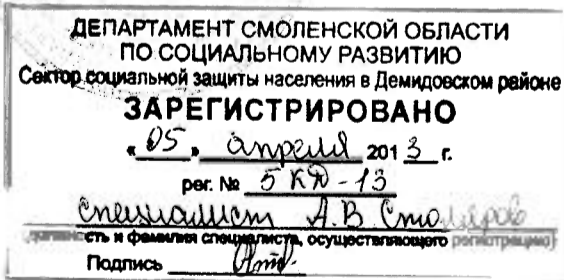 ДЕПАРТАМЕНТ СМОЛЕНСКОЙ ОБЛАСТИ
ПО СОЦИАЛЬНОМУ РАЗВИТИЮ
Сектор социальной защиты населения в Демидовском районе
ЗАРЕГИСТРИРОВАНО
« 05 » апреля 2013 г.
рег. № 5 КД - 13
специалист А.В Столяров
(должность и фамилия специалиста, осуществляющего регистрацию)
Подпись